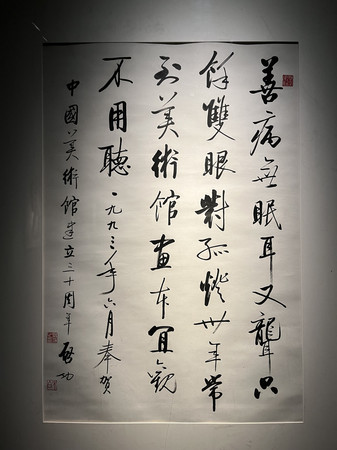 善病無眠耳又聾只
餘雙眼對孤燈卅年常
到美術館畫本宜觀
不用聽 一九九三年六月奉賀
中國美術館建立三十周年 啟功